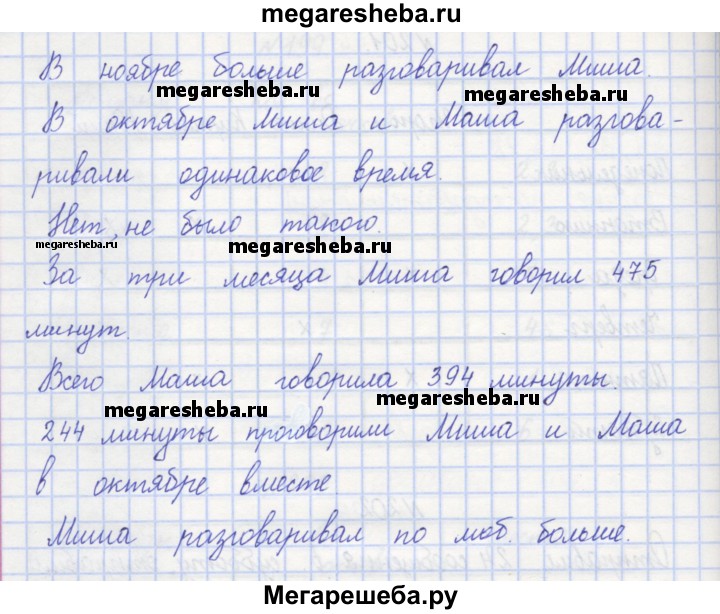 megaresheba.ru
В ноябре больше разговаривал Миша.
megaresheba.ru
megaresheba.ru
В октябре Миша и Маша разгова-
ривали одинаковое время.
Нет, не было такого.
megaresheba.ru
megaresheba.ru
За три месяца Миша говорил 475
минут.
Всего Маша говорила 394 минуты.
megaresheba.ru
megaresheba.ru
244 минуты проговорили Миша и Маша
в октябре вместе.
Миша разговаривал по моб. больше.
Мегарешеба.ру